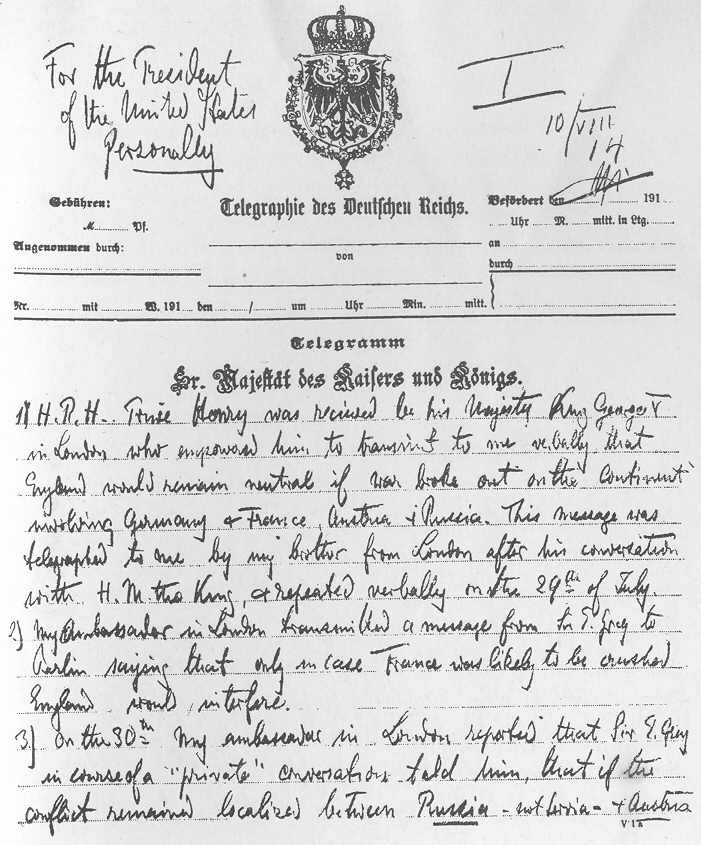 For the President
of the United States
Personally
I
10/VIII
14
Gebühren:
M. Pf.
Angenommen durch:
Telegraphie des Deutschen Reichs.
von
Befördert den / 191
Uhr M. mitt. in Ltg.
an
durch
Nr. mit W. 191 den / um Uhr Min. mitt.
Telegramm
Sr. Majestät des Kaisers und Königs.
1) H.R.H. Prince Henry was recieved be his Majesty King George V
in London who empowered him to transmit to me verbally that
England would remain neutral if war broke out on the Continent
involving Germany & France, Austria & Russia. This message was
telegraphed to me by my brother from London after his conversation
with H.M. the King, & repeated verbally on the 29th of July
2) My Ambassador in London transmitted a message from Sir E. Grey to
Berlin saying that only in case France was likely to be crushed
England would interfere.
3.) On the 30th my ambassador in London reported that Sir E. Grey
in course of a "private" conversation told him, that if the
conflict remained localized between Russia - not Servia - & Austria